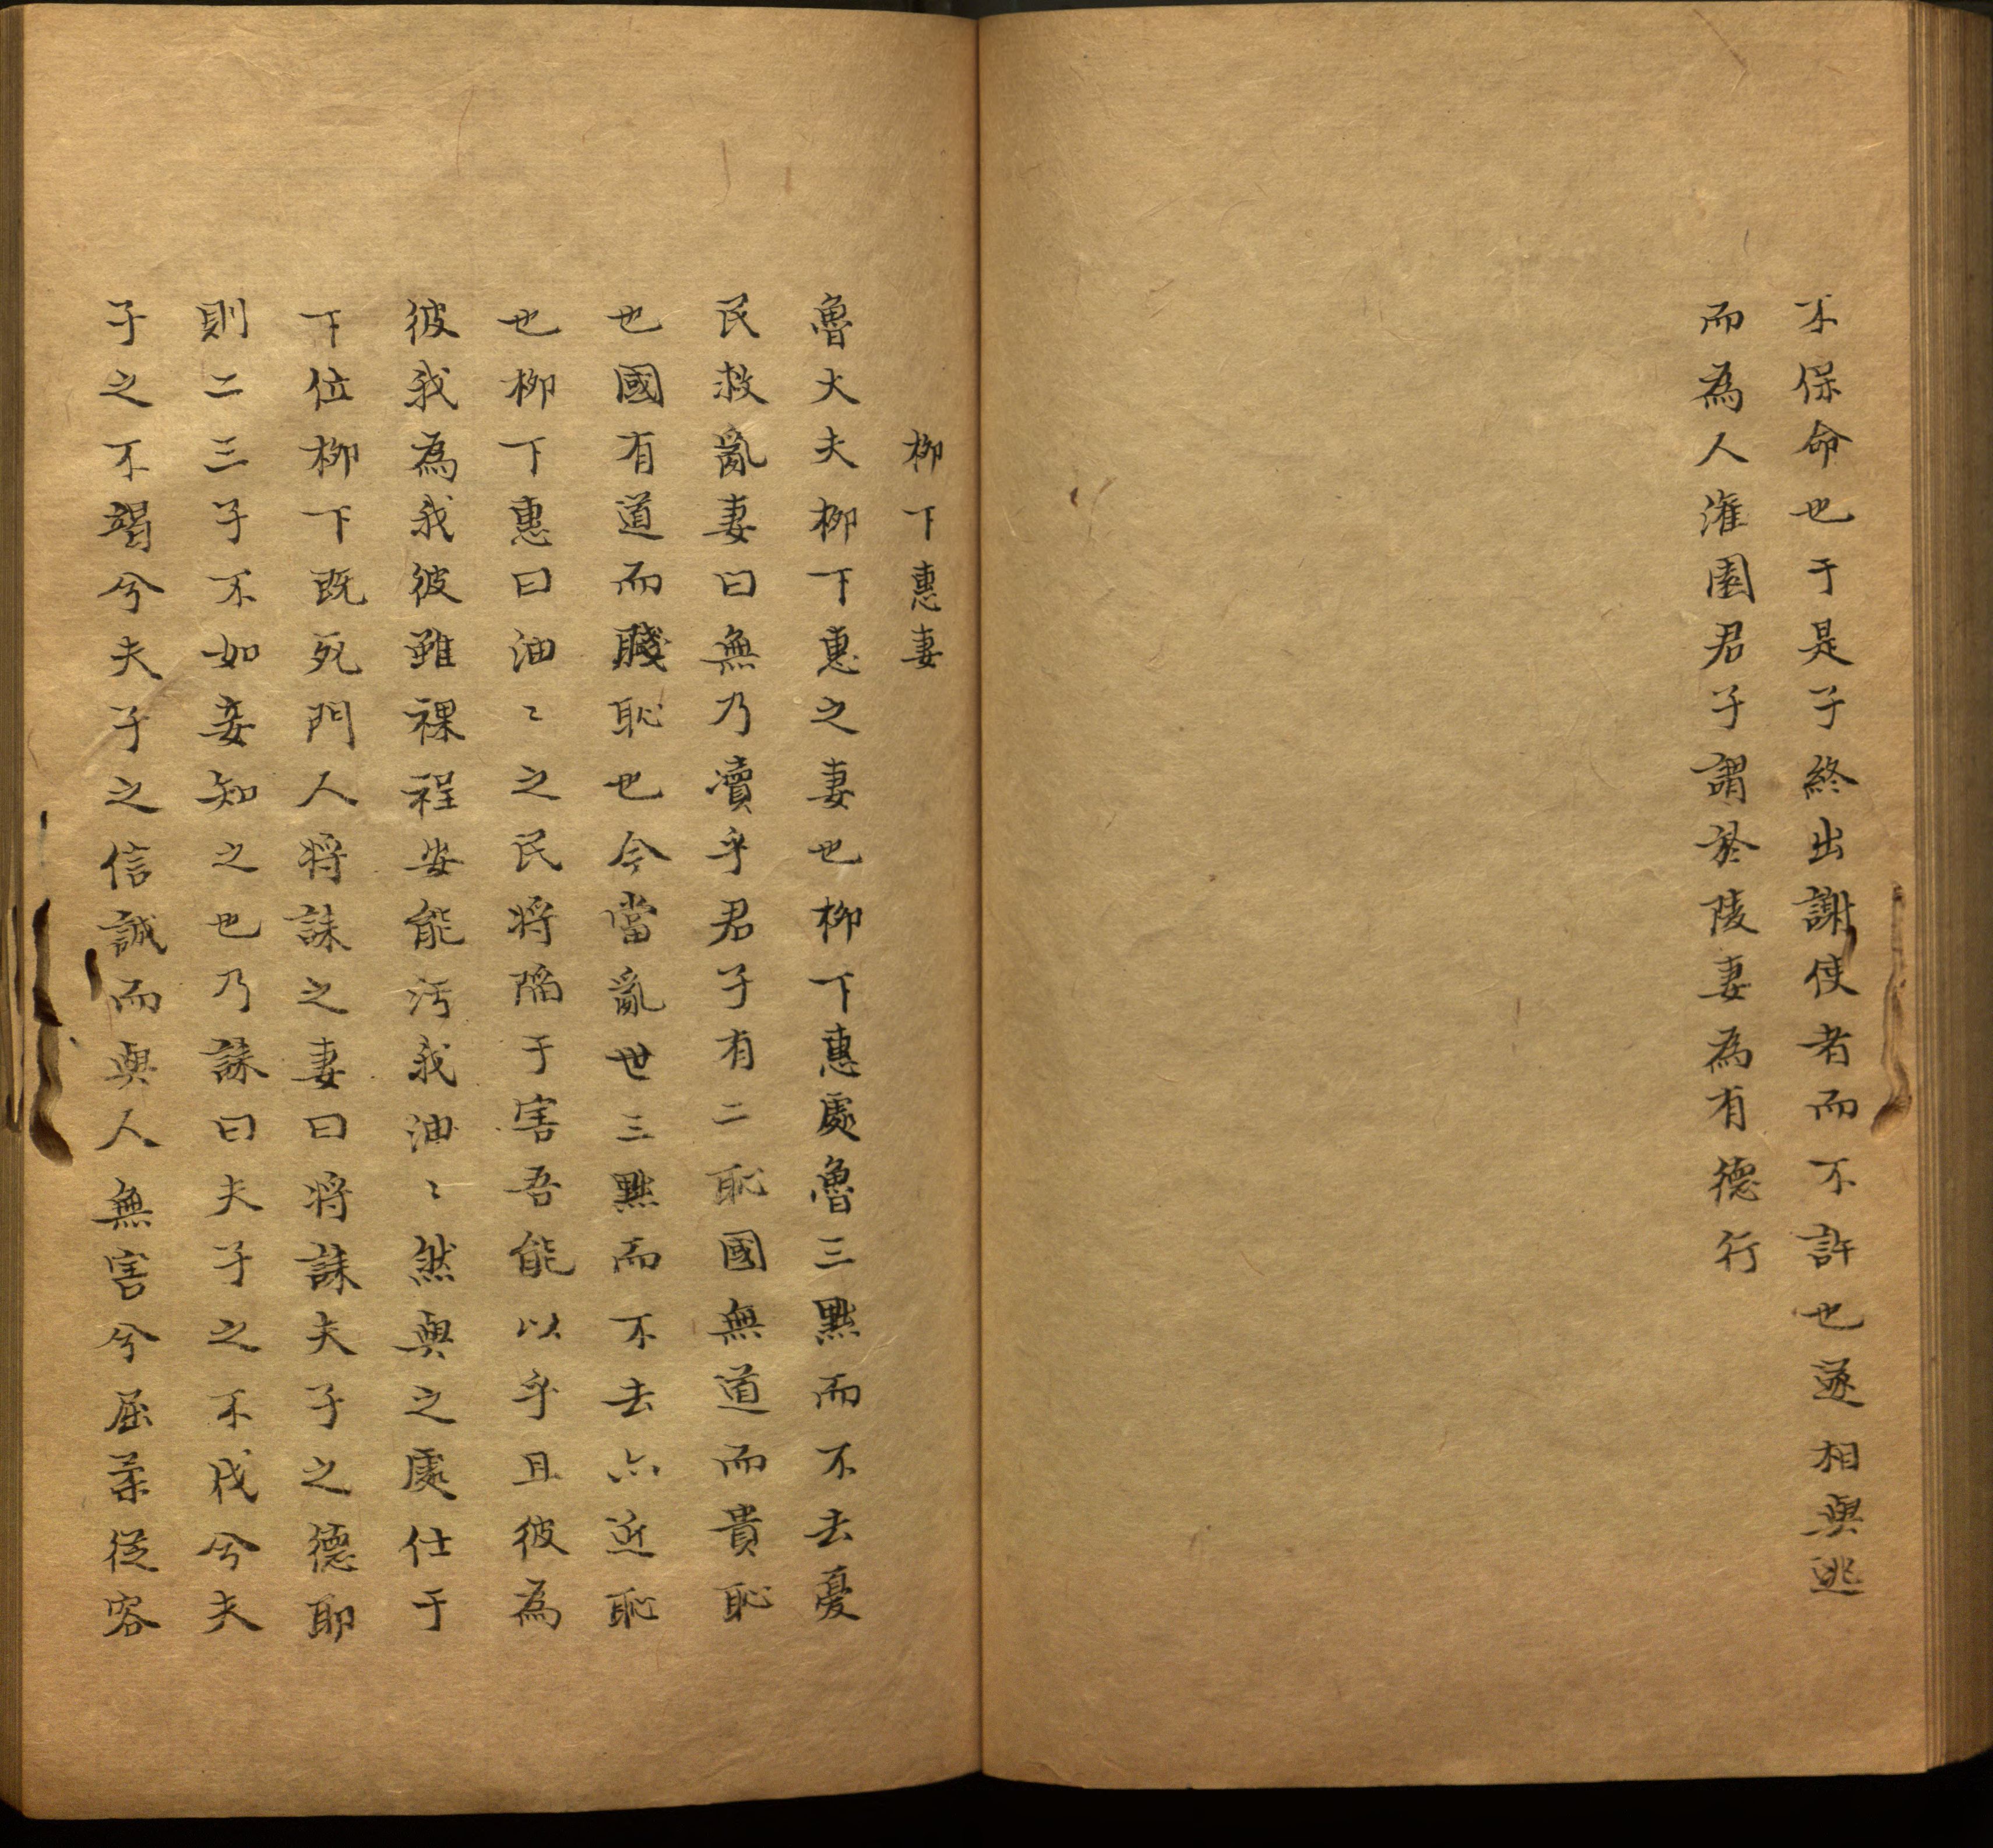 不保命也于是子終出謝使者而不許也遂相與逃
而為人灌園君子謂於陵妻為有德行
柳下惠妻
魯大夫柳下惠之妻也柳下惠處魯三黜而不去憂
民救亂妻曰無乃瀆乎君子有二恥國無道而貴恥
也國有道而賤恥也今當亂世三黜而不去亦近恥
也柳下惠曰油〻之民将陷于害吾能以乎且彼為
彼我為我彼雖裸裎安能汚我油〻然與之處仕于
下位柳下既死門人将誄之妻曰将誄夫子之德耶
則二三子不如妾知之也乃誄曰夫子之不伐兮夫
子之不竭兮夫子之信誠而與人無害兮屈柔從容